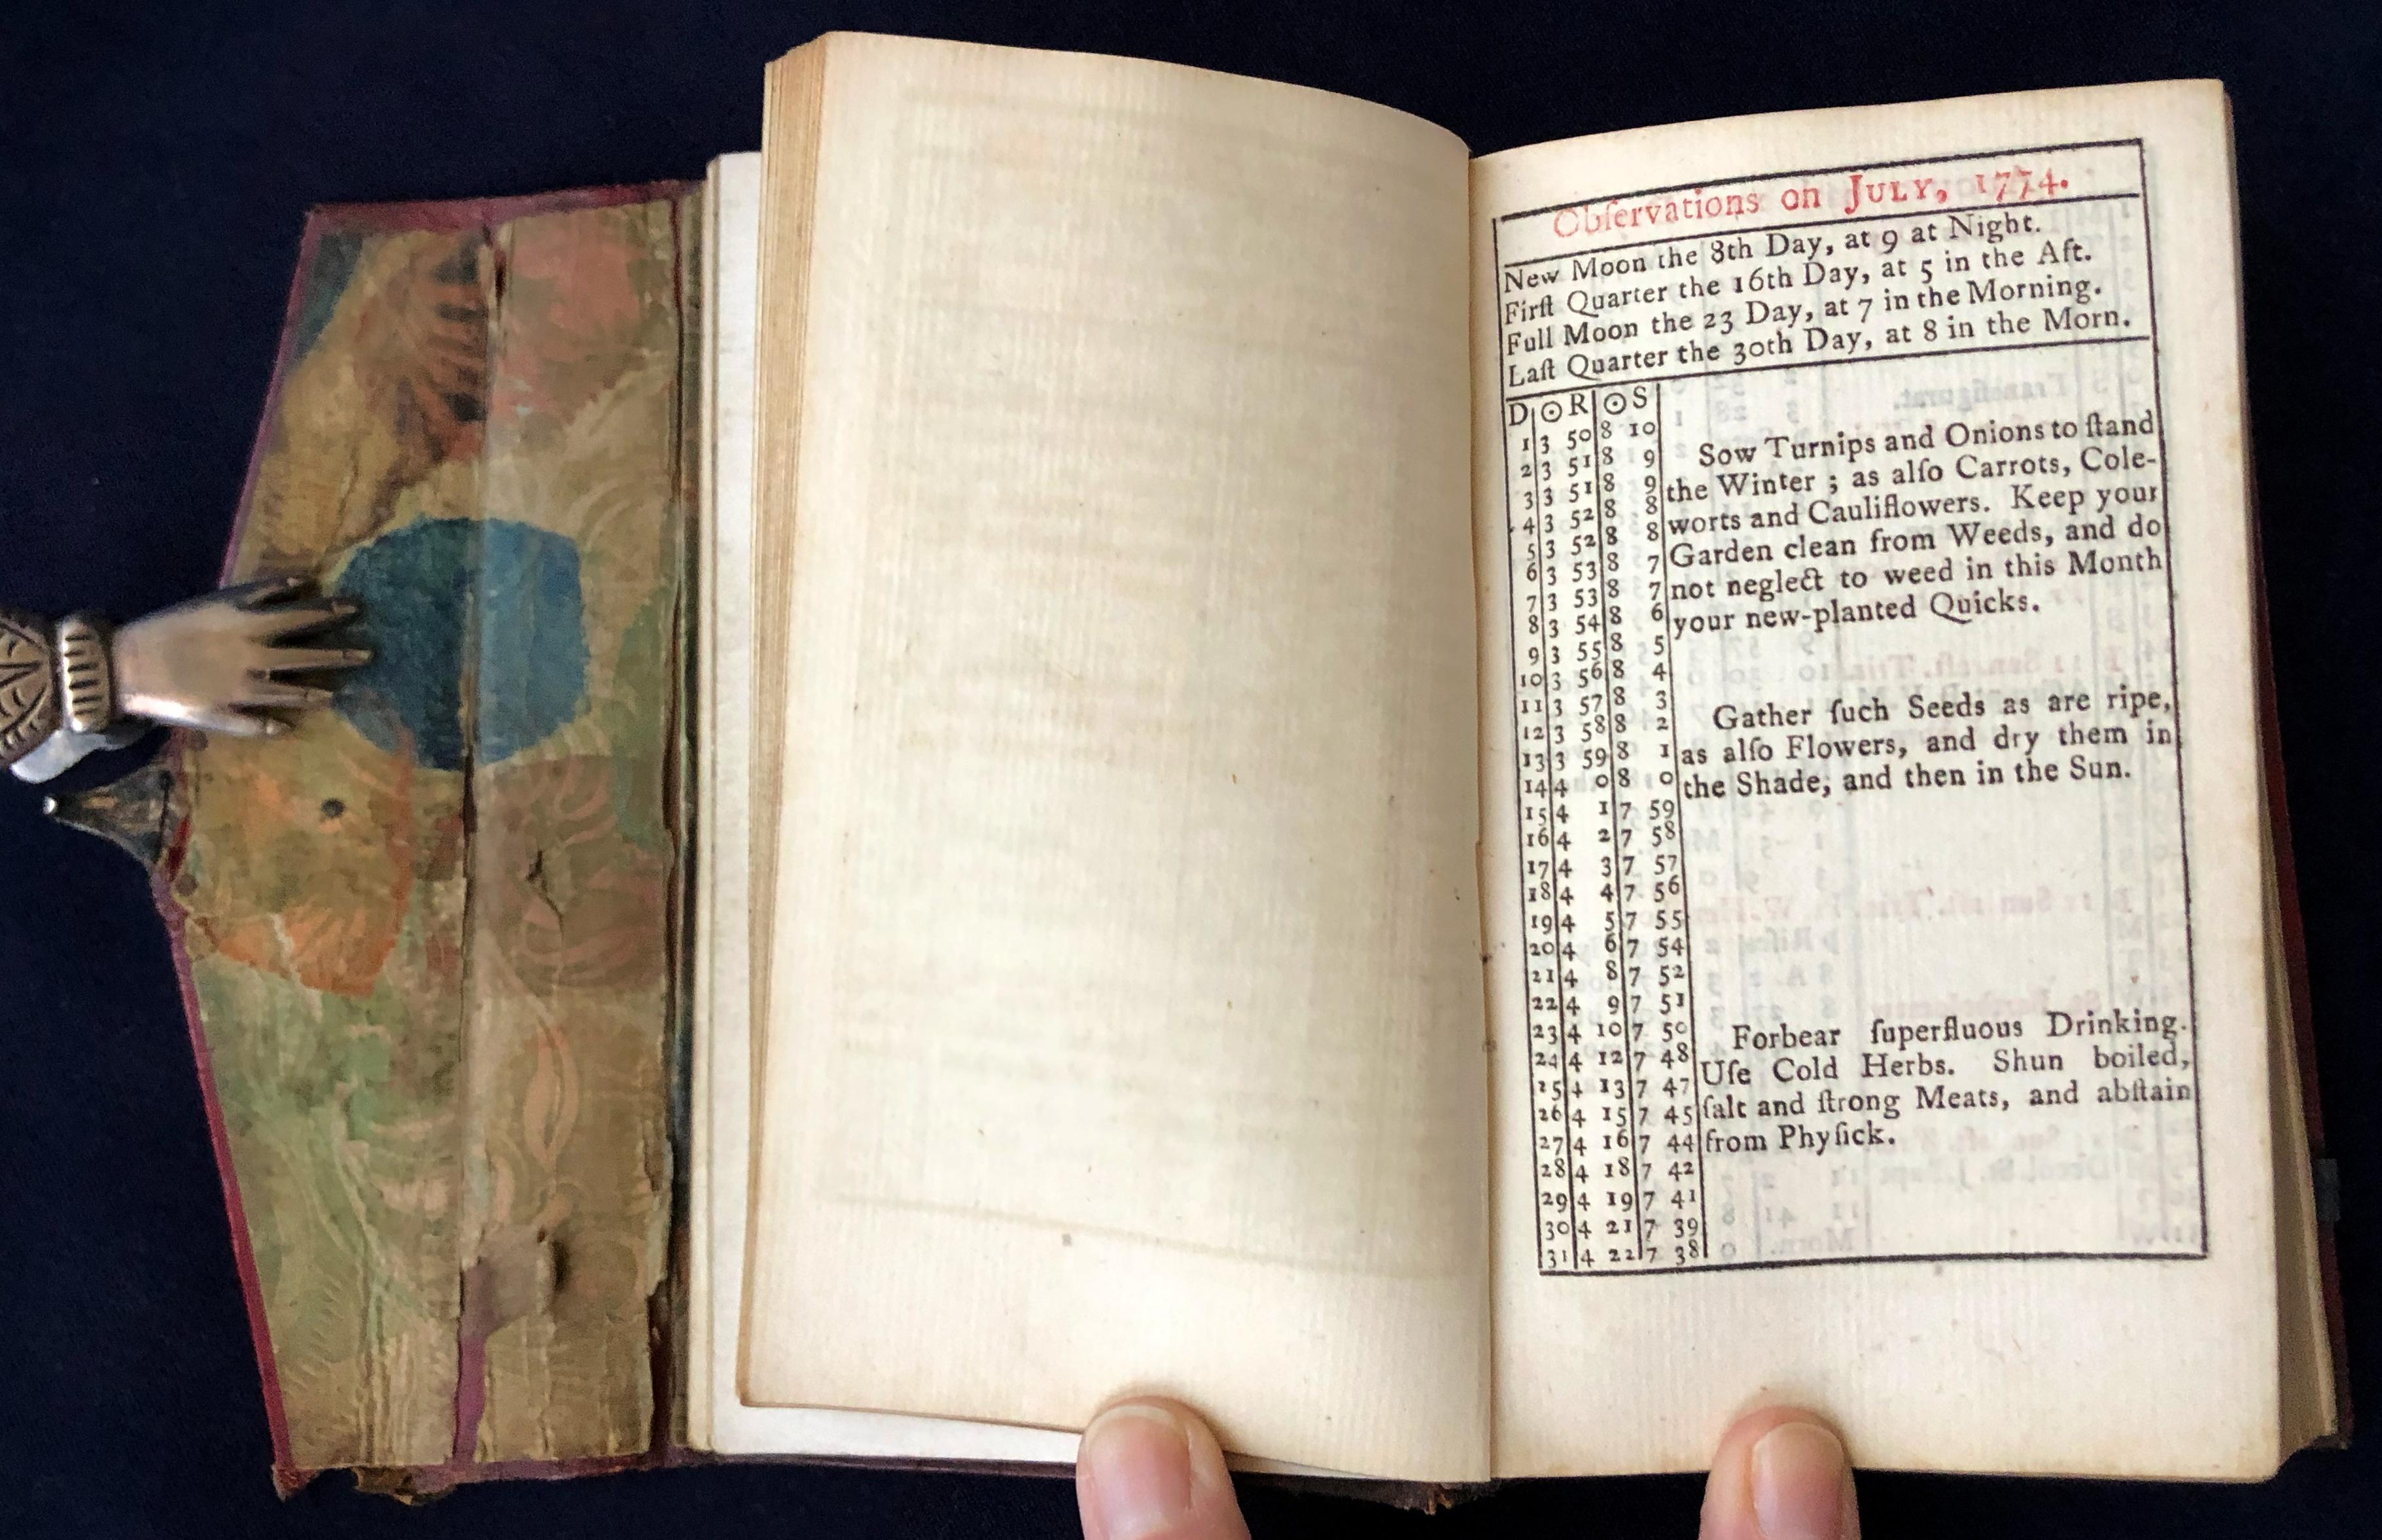 Obſervations on JULY, 1774.
New Moon the 8th Day, at 9 at Night.
Firſt Quarter the 16th Day, at 5 in the Aft.
Full Moon the 23 Day, at 7 in the Morning.
Laſt Quarter the 30th Day, at 8 in the Morn.
D ☉ R ☉ S
1 3 50 8 10
2 3 51 8 9
3 3 51 8 9
4 3 52 8 8
5 3 52 8 8
6 3 53 8 7
7 3 53 8 7
8 3 54 8 6
9 3 55 8 5
10 3 56 8 4
11 3 57 8 3
12 3 58 8 2
13 3 59 8 1
14 4 0 8 0
15 4 1 7 59
16 4 2 7 58
17 4 3 7 57
18 4 4 7 56
19 4 5 7 55
20 4 6 7 54
21 4 8 7 52
22 4 9 7 51
23 4 10 7 50
24 4 12 7 48
25 4 13 7 47
26 4 15 7 45
27 4 16 7 44
28 4 18 7 42
29 4 19 7 41
30 4 21 7 39
31 4 22 7 38
Sow Turnips and Onions to ſtand
the Winter ; as alſo Carrots, Cole-
worts and Cauliflowers. Keep your
Garden clean from Weeds, and do
not neglect to weed in this Month
your new-planted Quicks.
Gather ſuch Seeds as are ripe,
as alſo Flowers, and dry them in
the Shade, and then in the Sun.
Forbear ſuperfluous Drinking.
Uſe Cold Herbs. Shun boiled,
ſalt and ſtrong Meats, and abſtain
from Phyſick.